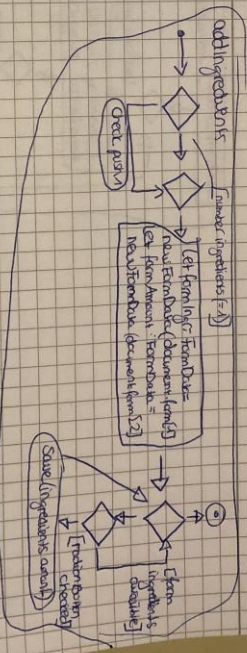 addIngredients
[number ingredients != 1]
Check push()
let formIngr: FormData=
new FormData(document.form[1])
let formAmount: FormData =
new FormData(document.form[2])
[form
ingredients
available]
[radiobutton
checked]
Save(ingredients.amount)